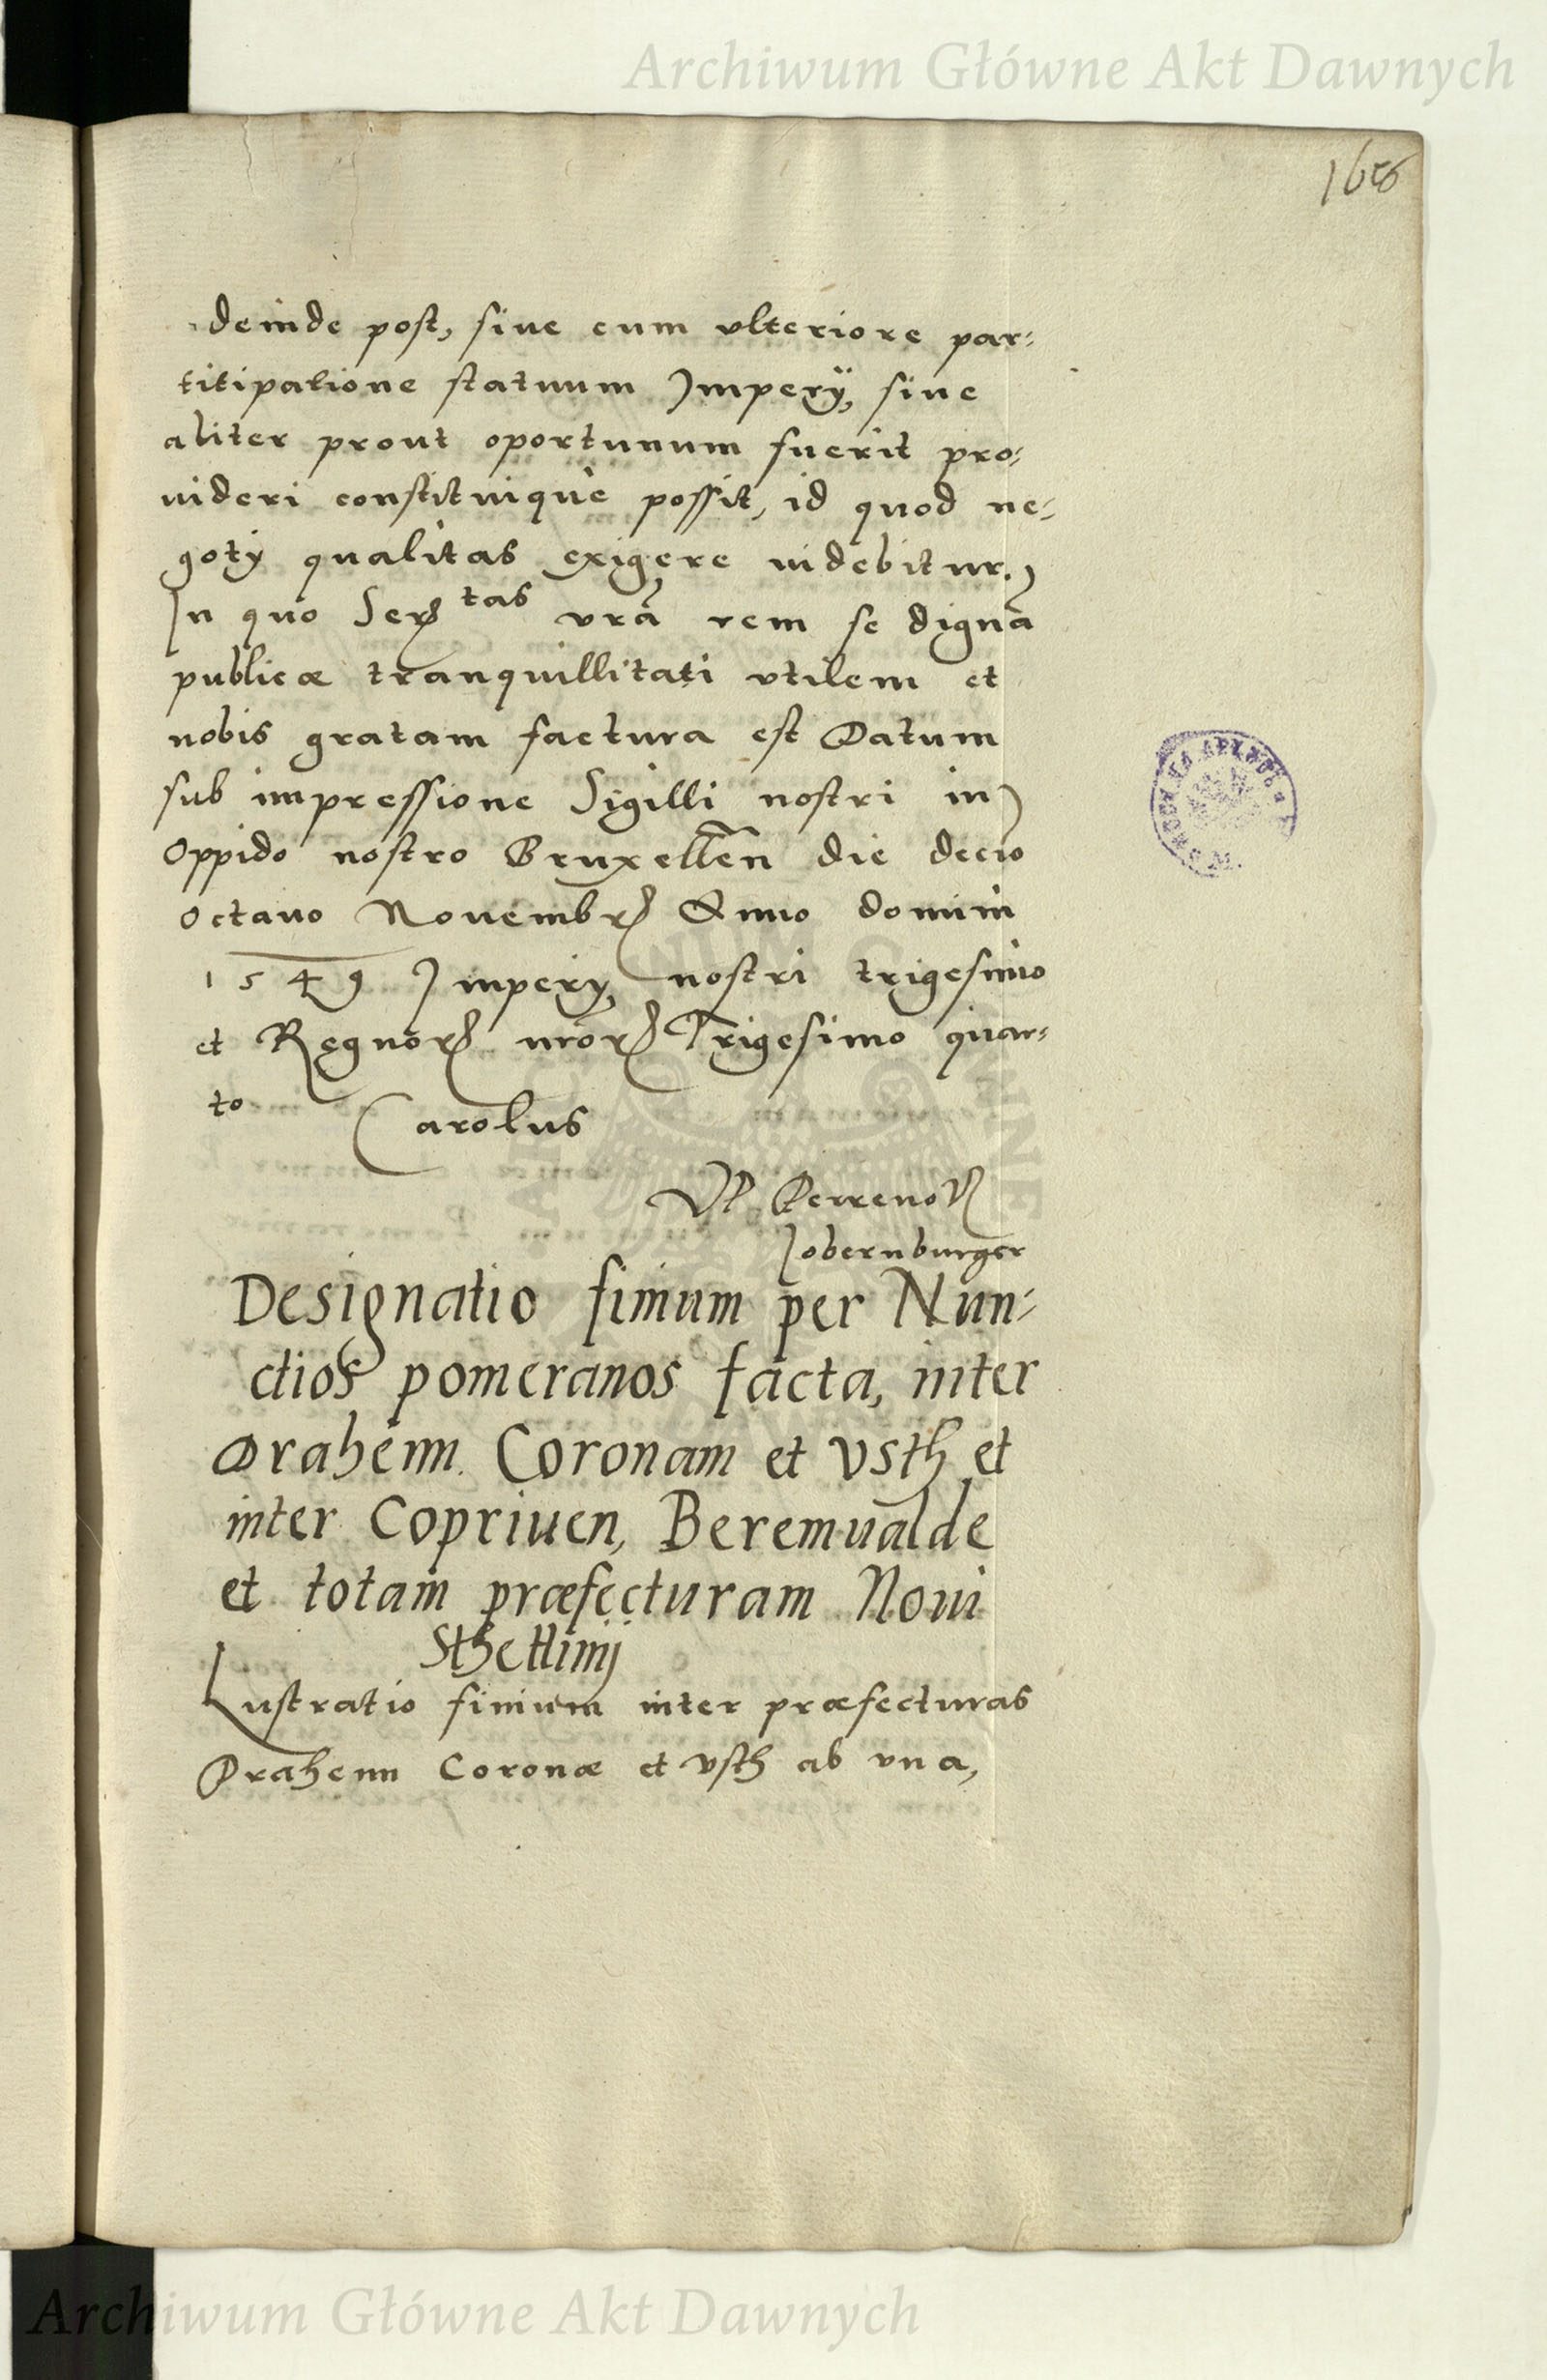 Archiwum Główne Akt Dawnych
deinde post, siue cum ulteriore par:
titipatione statuum Imperÿ, siue
aliter prout oportunum fuerit pro:
uideri constituiqúe possit, id quod ne:
gotÿ qualitas exigere uidebitur.
In quo Serꝭ tas vrā rem se dignā
publicæ tranquillitati vtilem et
nobis gratam factura est Datum
sub impressione Sigilli nostri in
Oppido nostro Bruxelleñ die decĩo
octauo Novembrꝭ Anno domini
1549 Imperÿ nostri trigesimo
et Regnorꝝ nrōrꝝ Trigesimo quar:
to
Carolus
Vt Perrenoꝭ
Jobernburger
Designatio finium per Nun:
ctios pomeranos facta, inter
Drahenn. Coronam et Vsth et
inter Copriuen, Beremualde
et totam præfecturam Noui
Sthettinij
Lustratio finium inter præfecturas
Drahenn Coronæ et Vsth ab vna,
Archiwum Główne Akt Dawnych